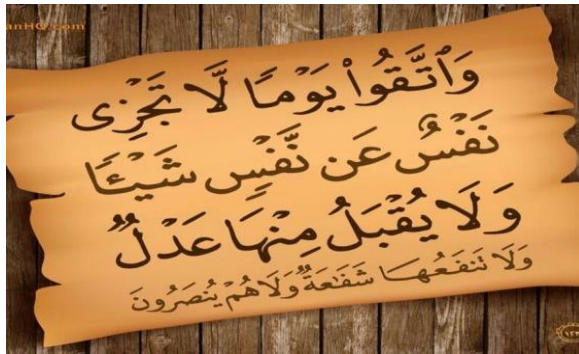 anHQ.com
وَٱتَّقُوا۟ يَوْمًا لَّا تَجْزِى
نَفْسٌ عَن نَّفْسٍ شَيْـًٔا
وَلَا يُقْبَلُ مِنْهَا عَدْلٌ
وَلَا تَنفَعُهَا شَفَـٰعَةٌ وَلَا هُمْ يُنصَرُونَ